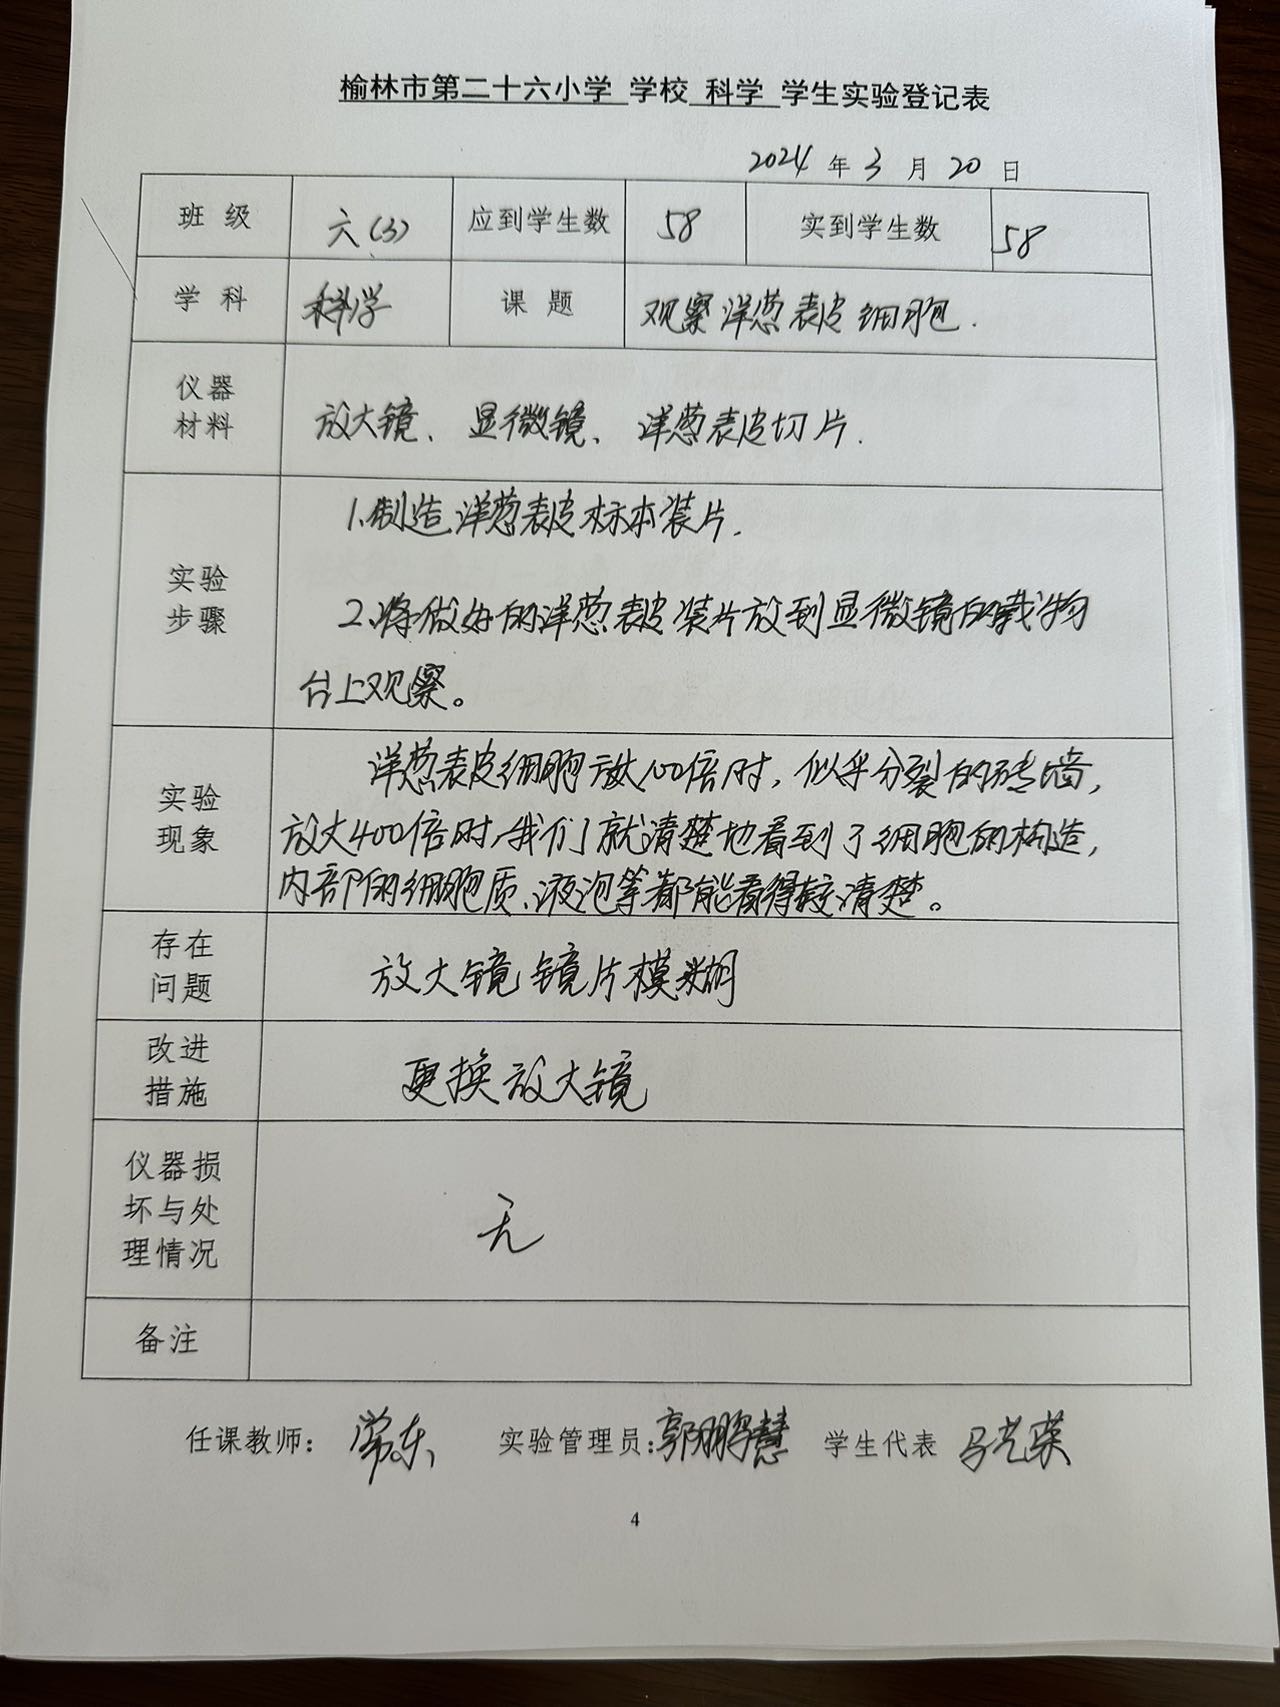 榆林市第二十六小学 学校 科学 学生实验登记表
2024 年 3 月 20 日
班 级 六(3) 应到学生数 58 实到学生数 58
学 科 科学 课 题 观察洋葱表皮细胞.
仪器
材料
放大镜、显微镜、洋葱表皮切片.
实验
步骤
1.制造洋葱表皮标本装片.
2.将做好的洋葱表皮装片放到显微镜的载物
台上观察。
实验
现象
洋葱表皮细胞放大100倍时,似乎分裂的砖墙,
放大400倍时,我们就清楚地看到了细胞的构造,
内部的细胞质、液泡等都能看得较清楚。
存在
问题
放大镜镜片模糊
改进
措施
更换放大镜
仪器损
坏与处
理情况
无
备注
任课教师: 常东 实验管理员:郭鹏慧 学生代表 马艺菜
4